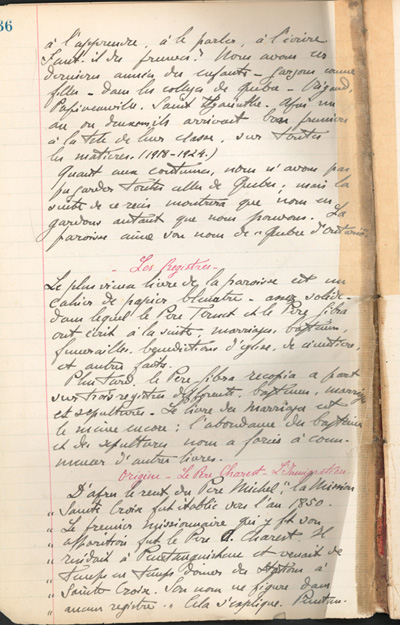 36
à l'apprendre, à le parler, à l'écrire.
Faut-il des preuves? Nous avons ces
dernières années des enfants - garçons comme
filles - dans les collèges de Québec - Rigaud,
Papineauville, Saint Hyacinthe. Après un
an ou deux ils arrivent bon premiers
à la tête de leur classe, sur toutes
les matières. (1918-1924.)
Quant aux coutumes, nous n'avons pas
pu garder toutes celles de Québec; mais la
suite de ce récit montrera que nous en
gardons autant que nous pouvons. La
paroisse aime son nom de "Québec d'Ontario
- Les Registres -
Le plus vieux livre de la paroisse est un
cahier de papier - assez solide -
dans lequel le Père et le Père Gibra
ont écrit à la suite, mariages, baptêmes,
funérailles, bénédictions d'église, de cimetière
et autres faits.
Plus tard, le Père Gibra recopia à part
sur trois registres différents, baptêmes, mariages
et sépultures. Le livre des mariages est
le même encore; l'abondance des baptêmes
et des sépultures nous a forcés à com-
mencer d'autres livres.
Origine - Le Père Charest - L'Immigration
D'après le récit du Père Michel, "la Mission
" Sainte Croix fut établie vers l'an 1850.
" Le premier missionnaire qui y fit son
" apparition fut le Père Charest. Il
" résidait à Penetanguishene et venait de
" temps en temps donner des à
" Sainte Croix. Son nom ne figure dans
" aucun registre. " Cela s'explique. Penetan-